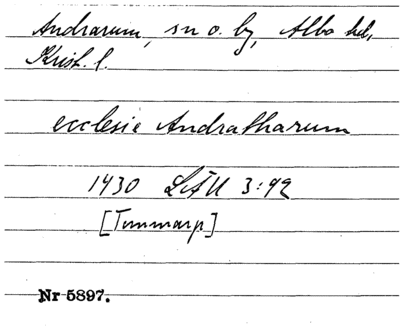 Andrarum, sn o. by, Albo hd,
Krist. l.
ecclesie Andratharum
1430 LÄU 3:92
[Tommarp]
Nr 5897.